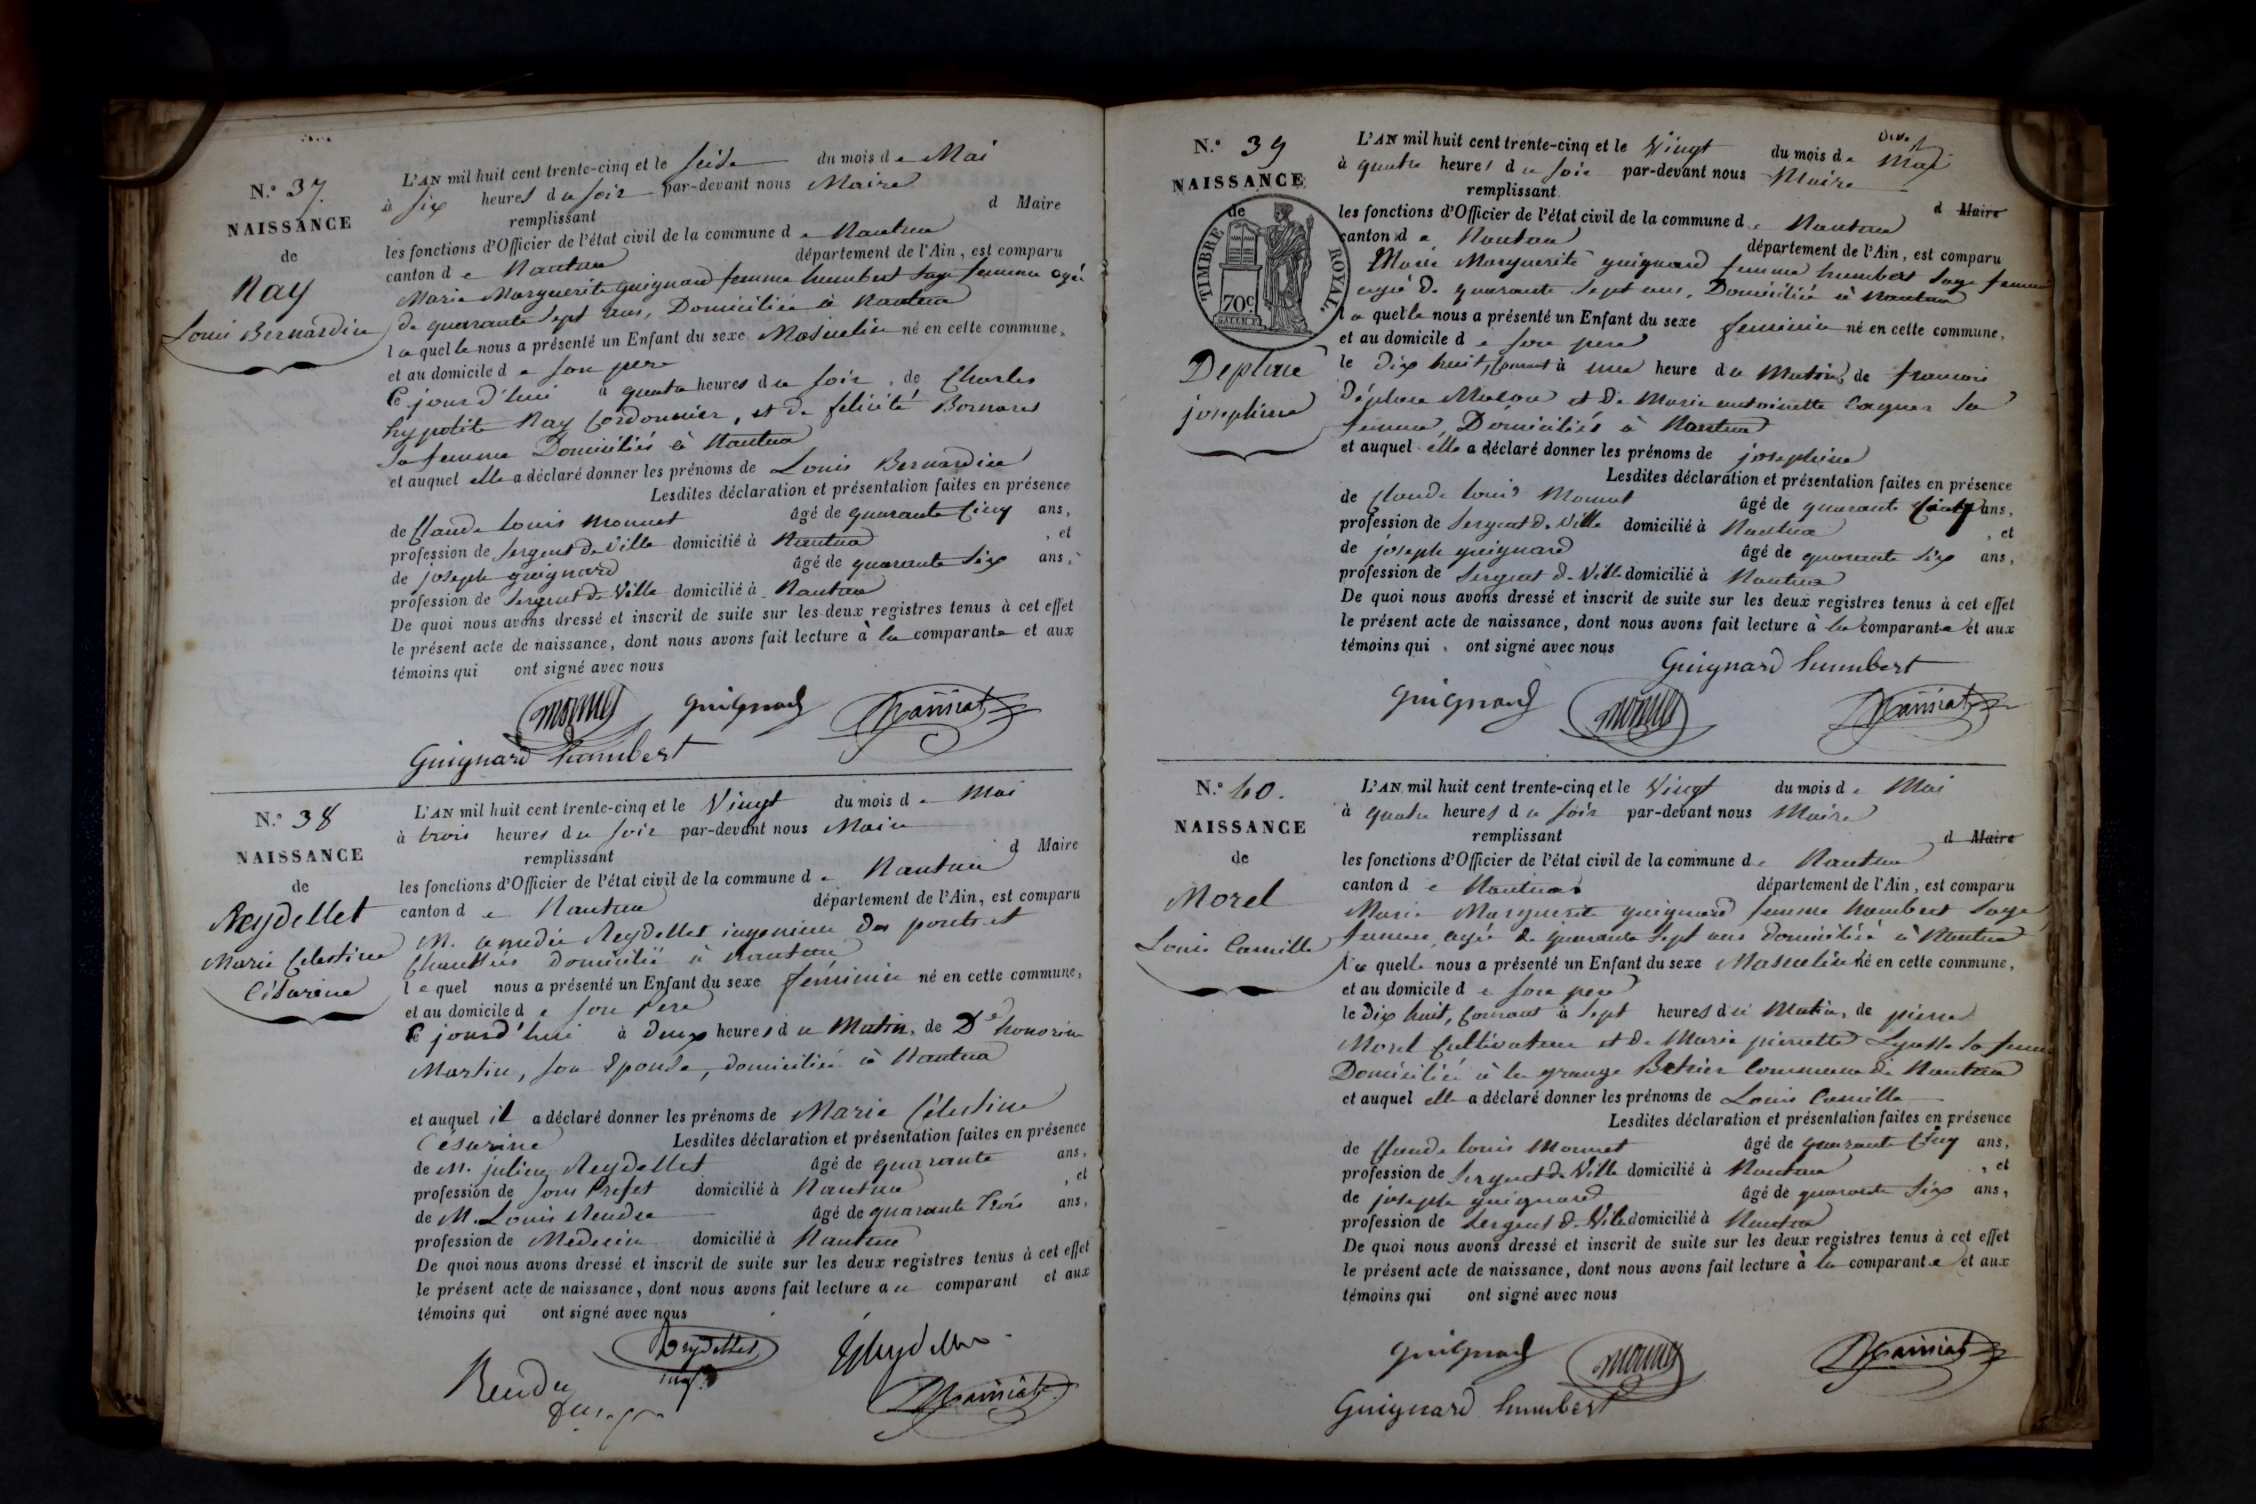 N.º 37.
NAISSANCE
de
Ray
Louis Bernardin
L'AN mil huit cent trente-cinq et le seize du mois de Mai
à six heures du soir par-devant nous Maire
remplissant d Maire
les fonctions d'Officier de l'état civil de la commune de Nantua
canton de Nantua département de l'Ain, est comparu
Marie Marguerite guignard femme humbert sage femme agée
de quarante sept ans, Domiciliée à Nantua
laquelle nous a présenté un Enfant du sexe Masculin né en cette commune,
et au domicile de son pere
Ce jourd'hui à quatre heures du soir, de Charles
hypolite Ray Cordonnier, et de félicité
sa femme Domiciliés à Nantua
et auquel elle a déclaré donner les prénoms de Louis Bernardin
Lesdites déclaration et présentation faites en présence
de Claude Louis Monnet âgé de quarante Cinq ans,
profession de Sergent de Ville domicilié à Nantua, et
de joseph guignard âgé de quarante six ans,
profession de Sergent de Ville domicilié à Nantua
De quoi nous avons dressé et inscrit de suite sur les deux registres tenus à cet effet
le présent acte de naissance, dont nous avons fait lecture à la comparante et aux
témoins qui ont signé avec nous
monnet guignard
Guignard humbert
N.º 38
NAISSANCE
de
Reydellet
Marie Célestine
Césarine
L'AN mil huit cent trente-cinq et le Vingt du mois de Mai
à trois heures du soir par-devant nous Maire
remplissant d Maire
les fonctions d'Officier de l'état civil de la commune de Nantua
canton de Nantua département de l'Ain, est comparu
M. amedée Reydellet ingenieur des ponts et
Chaussées domicilié à Nantua
lequel nous a présenté un Enfant du sexe féminin né en cette commune,
et au domicile de son Pere
Ce jourd'hui à deux heures du Matin, de De honorine
Martin, son Epouse, domiciliée à Nantua
et auquel il a déclaré donner les prénoms de Marie Célestine
Césarine Lesdites déclaration et présentation faites en présence
de M. julien Reydellet âgé de quarante ans,
profession de Sous Prefet domicilié à Nantua, et
de M. Louis Rendu âgé de quarante trois ans,
profession de Médecin domicilié à Nantua
De quoi nous avons dressé et inscrit de suite sur les deux registres tenus à cet effet
le présent acte de naissance, dont nous avons fait lecture au comparant et aux
témoins qui ont signé avec nous
Reydellet
Rendu
N.º 39
NAISSANCE
de
TIMBRE ROYAL.
70c
Deplace
josephine
L'AN mil huit cent trente-cinq et le Vingt du mois de Mai
à quatre heures du soir par-devant nous Maire
remplissant d Maire
les fonctions d'Officier de l'état civil de la commune de Nantua
canton de Nantua département de l'Ain, est comparu
Marie Marguerite guignard femme humbert sage femme
agée de quarante sept ans, Domiciliée à Nantua
laquelle nous a présenté un Enfant du sexe feminin né en cette commune,
et au domicile de son pere
le dix huit, Courant à une heure du Matin, de francois
Déplace Macon et de Marie antoinette sa
femme, Domiciliés à Nantua
et auquel elle a déclaré donner les prénoms de josephine
Lesdites déclaration et présentation faites en présence
de Claude Louis Monnet âgé de quarante Cinq ans,
profession de Sergent de Ville domicilié à Nantua, et
de joseph guignard âgé de quarante six ans,
profession de Sergent de Ville domicilié à Nantua
De quoi nous avons dressé et inscrit de suite sur les deux registres tenus à cet effet
le présent acte de naissance, dont nous avons fait lecture à la comparante et aux
témoins qui ont signé avec nous
Guignard humbert
guignard monnet
N.º 40.
NAISSANCE
de
Morel
Louis Camille
L'AN mil huit cent trente-cinq et le Vingt du mois de Mai
à quatre heures du soir par-devant nous Maire
remplissant d Maire
les fonctions d'Officier de l'état civil de la commune de Nantua
canton de Nantua département de l'Ain, est comparu
Marie Marguerite guignard femme humbert sage
femme, agée de quarante sept ans domiciliée à Nantua
laquelle nous a présenté un Enfant du sexe Masculin né en cette commune,
et au domicile de son pere
le dix huit, Courant à sept heures du Matin, de pierre
Morel Cultivateur et de Marie pierrette sa femme
Domiciliés à la grange Commune de Nantua
et auquel elle a déclaré donner les prénoms de Louis Camille
Lesdites déclaration et présentation faites en présence
de Claude Louis Monnet âgé de quarante Cinq ans,
profession de Sergent de Ville domicilié à Nantua, et
de joseph guignard âgé de quarante six ans,
profession de Sergent de Ville domicilié à Nantua
De quoi nous avons dressé et inscrit de suite sur les deux registres tenus à cet effet
le présent acte de naissance, dont nous avons fait lecture à la comparante et aux
témoins qui ont signé avec nous
guignard monnet
Guignard humbert